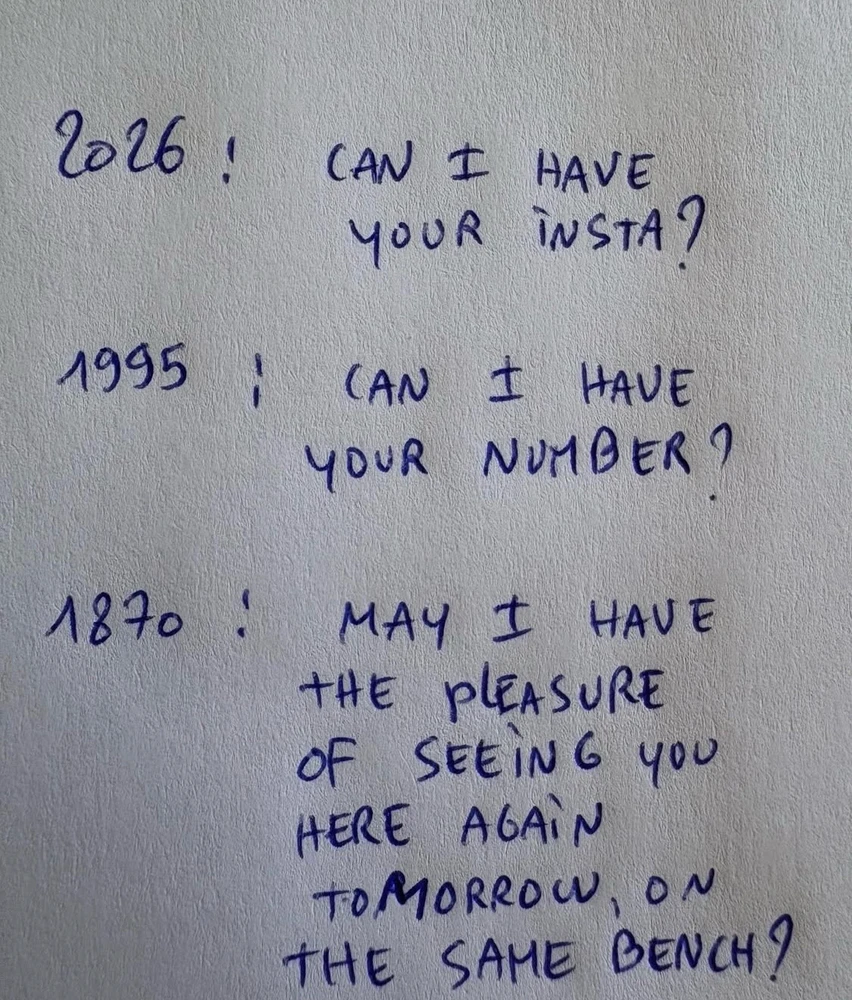 2026: CAN I HAVE
YOUR INSTA?
1995: CAN I HAVE
YOUR NUMBER?
1870: MAY I HAVE
THE PLEASURE
OF SEEING YOU
HERE AGAIN
TOMORROW, ON
THE SAME BENCH?